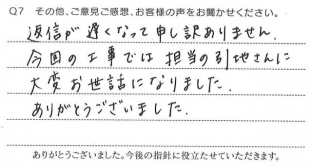 Q7 その他、ご意見ご感想、お客様の声をお聞かせください。
返信が遅くなって申し訳ありません.
今回の工事では担当の引地さんに
大変お世話になりました.
ありがとうございました.
ありがとうございました。今後の指針に役立たせていただきます。